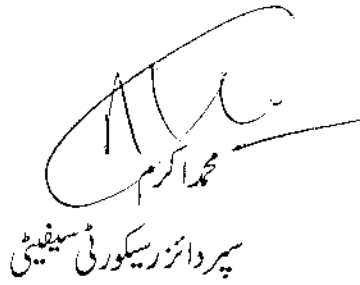 محمد اکرم
سپروائزر سیکورٹی سیفیٹی